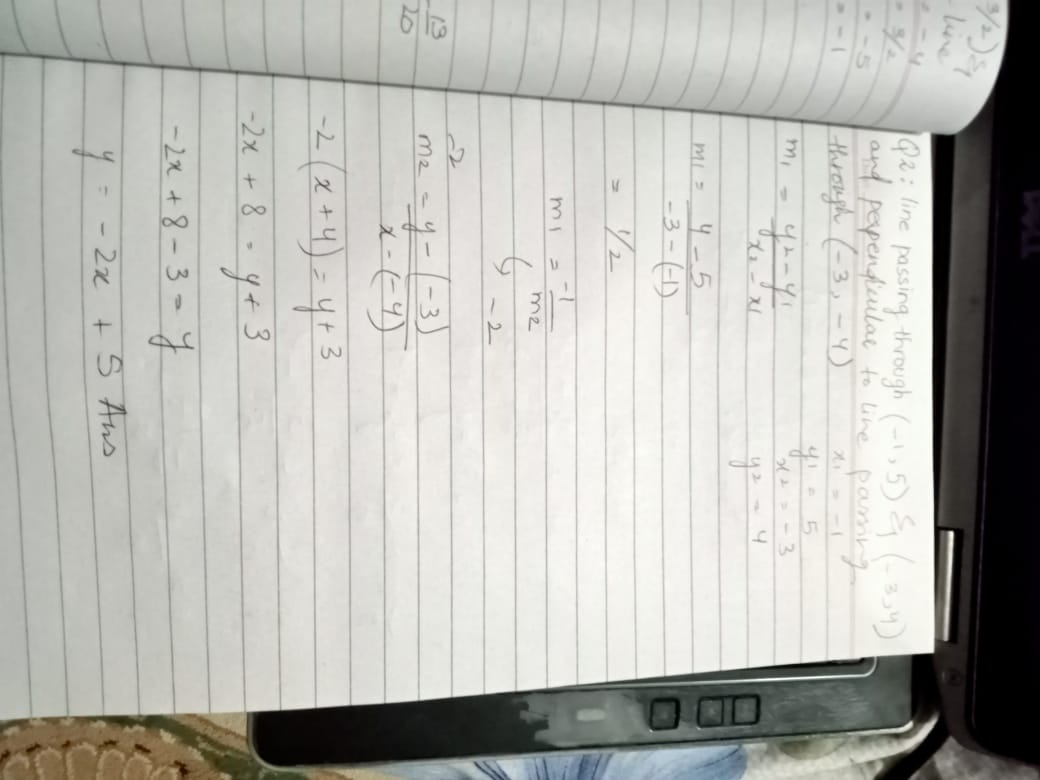 DELL
3/2) &
line
= -4
= 3/2
= -5
= -1
13/20
Q2: line passing through (-1, 5) & (-3, 4)
and perpendicular to line passing
through (-3, -4)
x1 = -1
y1 = 5
x2 = -3
y2 = 4
m1 = y2 - y1 / x2 - x1
m1 = 4 - 5 / -3 - (-1)
= 1/2
m1 = -1 / m2
-2
-2
m2 = y - (-3) / x - (-4)
-2 (x + 4) = y + 3
-2x + 8 = y + 3
-2x + 8 - 3 = y
y = -2x + 5 Ans